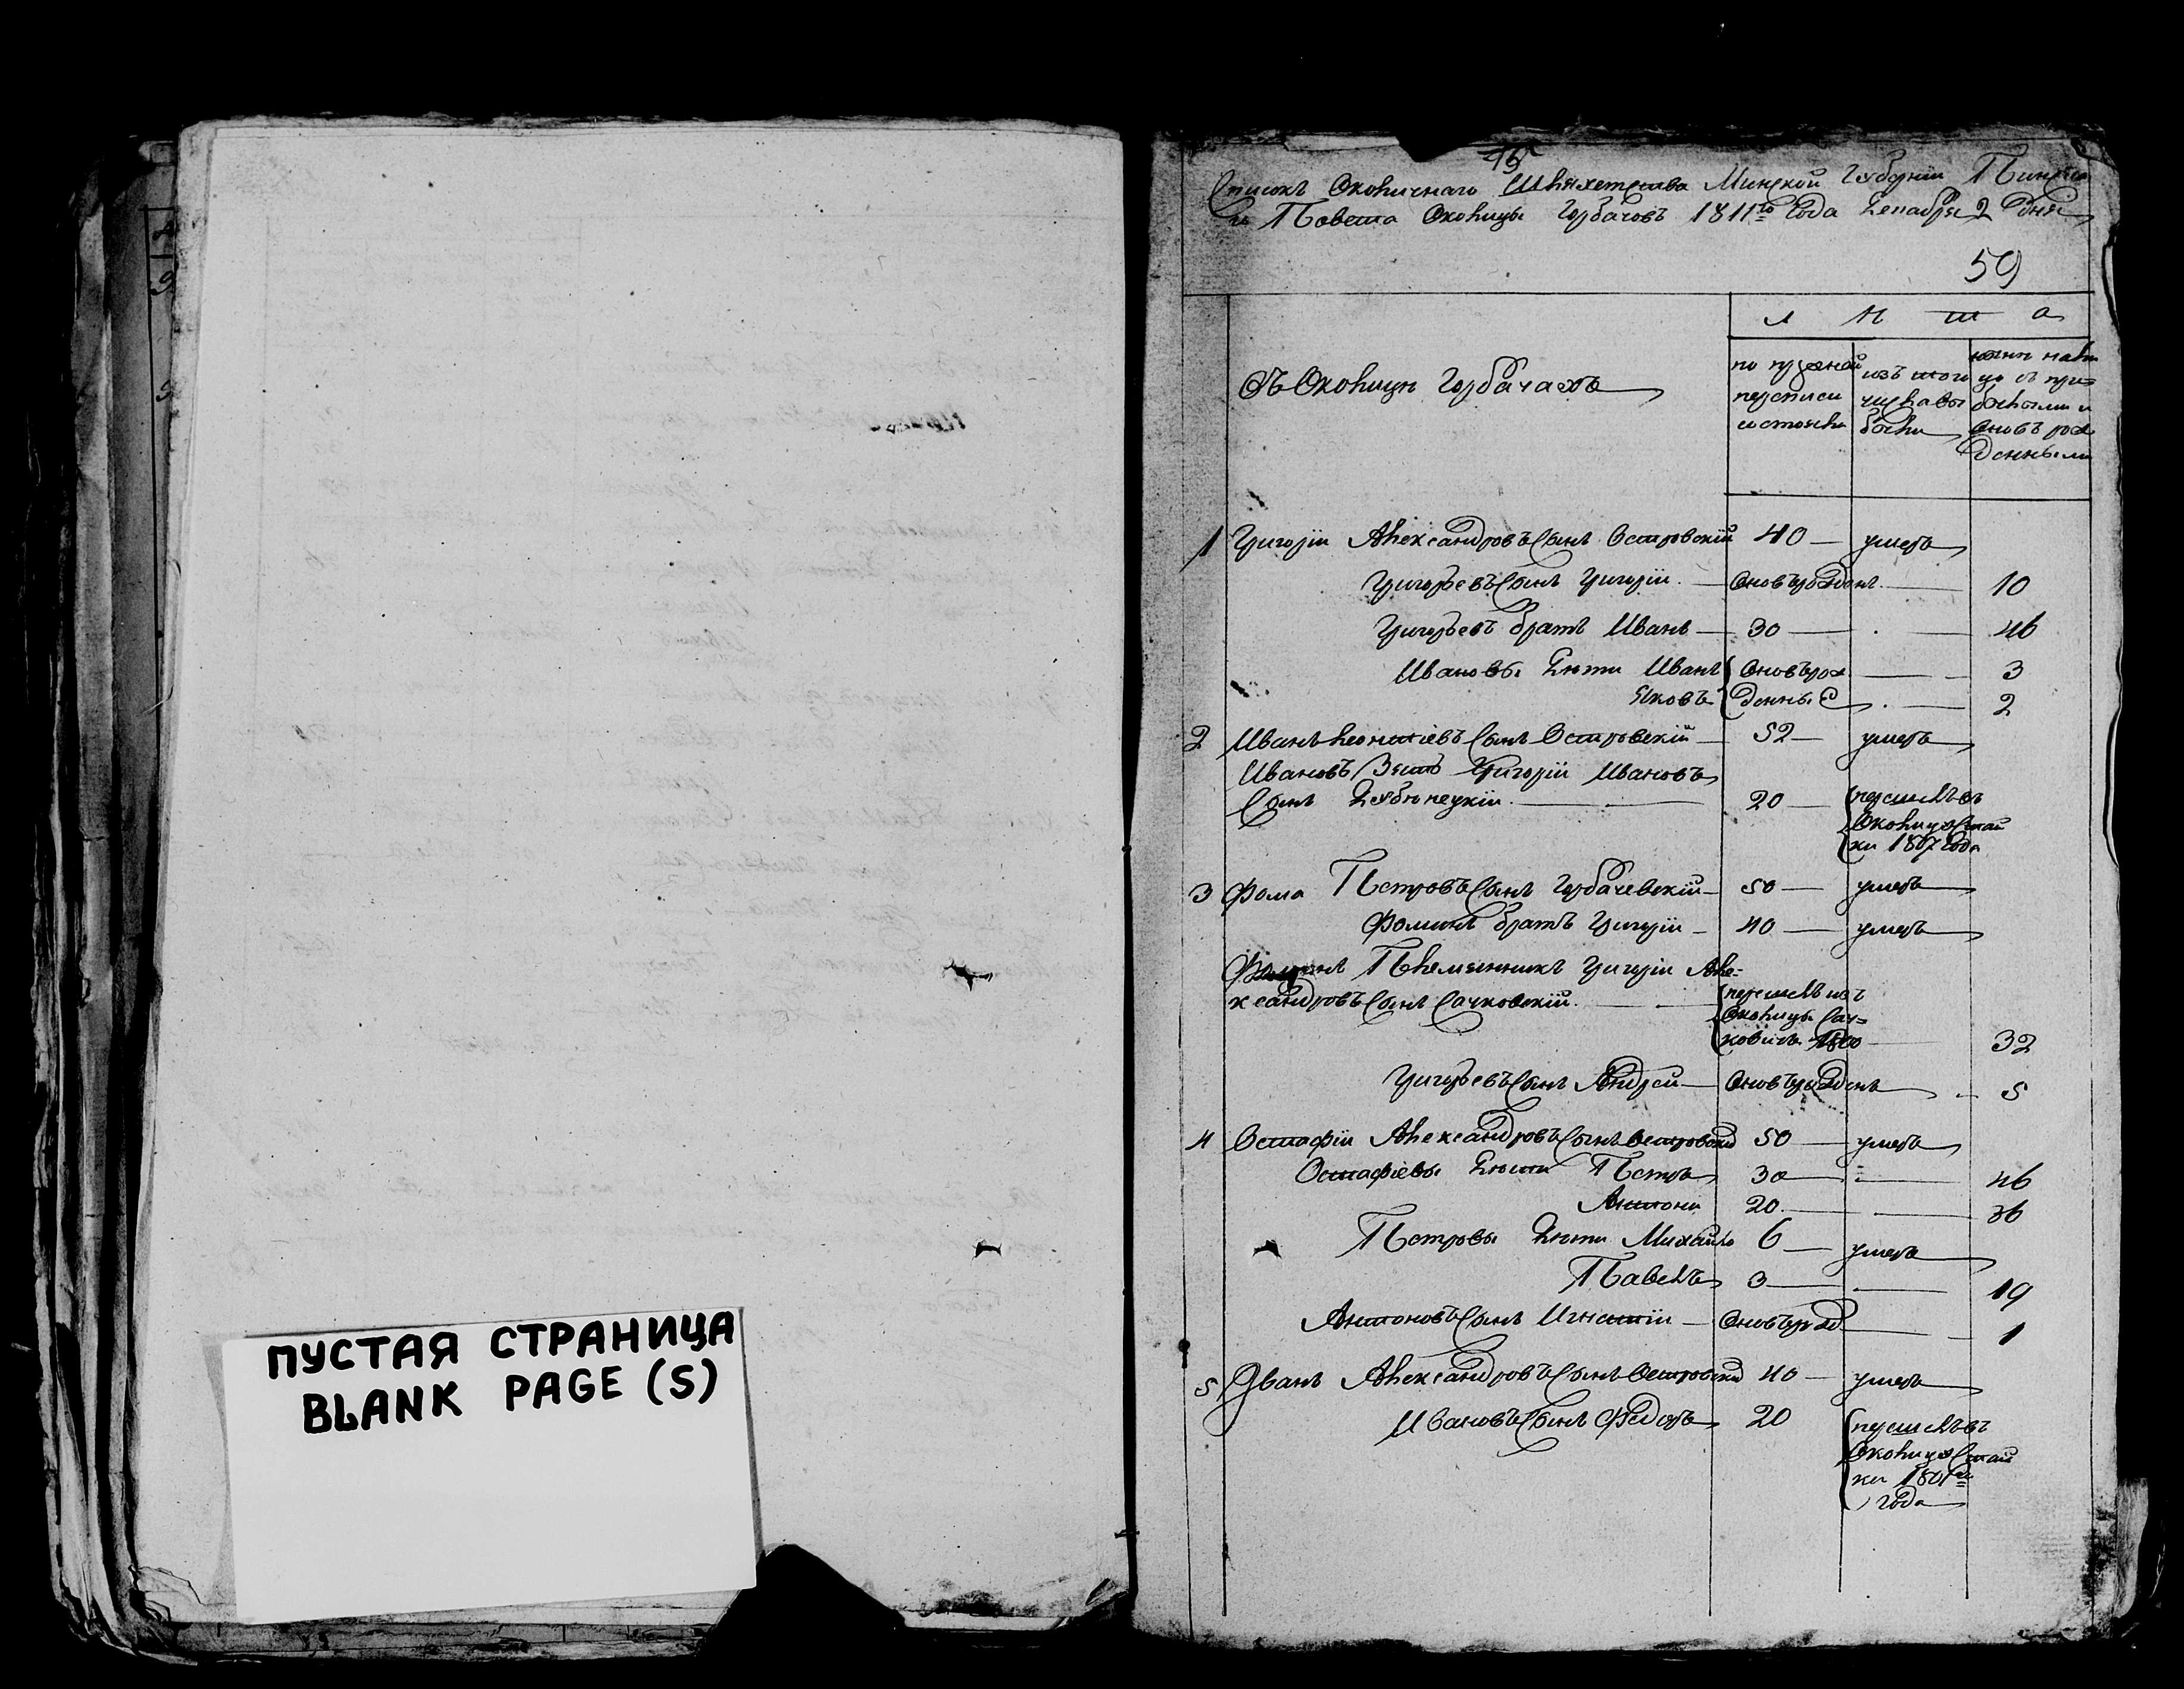 ПУСТАЯ СТРАНИЦА
BLANK PAGE (S)
15
Списокъ Околичнаго Шляхетства Минской Губерніи Пинска
го Повета Околицы Горбачовъ 1811го Года Декабря 2 дня
59
Л Ѣ т а
Въ Околицѣ Горбачахъ
по прежней
переписи
состояло
изъ того
числа вы
было
ныне на ли
цо съ при
былыми и
вновь рож
денными
1 Григорій Александровъ Сынъ Островскій 40 — умеръ
Григорьевъ Сынъ Григорій — вновь рожденъ — 10
Григорьевъ братъ Иванъ — 30 — 46
Ивановы Дѣти Иванъ вновь рож — 3
Яковъ денные — 2
2 Иванъ Леонтіевъ Сынъ Островскій — 52 — умеръ
Ивановъ Зять Григорій Ивановъ
Сынъ — 20 — перешелъ въ
Околицу Стай
ки 1807 года
3 Фома Петровъ Сынъ Горбачевскій — 50 — умеръ
Фоминъ братъ Григорій — 40 — умеръ
Фоминъ Племянникъ Григорій Але=
ксандровъ Сынъ Сачковскій — перешелъ изъ
Околицы Сач=
ковичъ 1800 — 32
Григорьевъ Сынъ Андрей — вновь рожденъ — 5
4 Остафій Александровъ Сынъ Островскій 50 — умеръ
Остафіевы Дѣти Петръ 30 — 46
Антони 20 — 36
Петровы Дѣти Михайло 6 — умеръ
Павелъ 3 — 19
Антоновъ Сынъ Игнатій — вновь рожд — 1
5 Иванъ Александровъ Сынъ Островскій 40 — умеръ
Ивановъ Сынъ Федоръ 20 перешелъ въ
Околицу Стай
ки 1801го
года